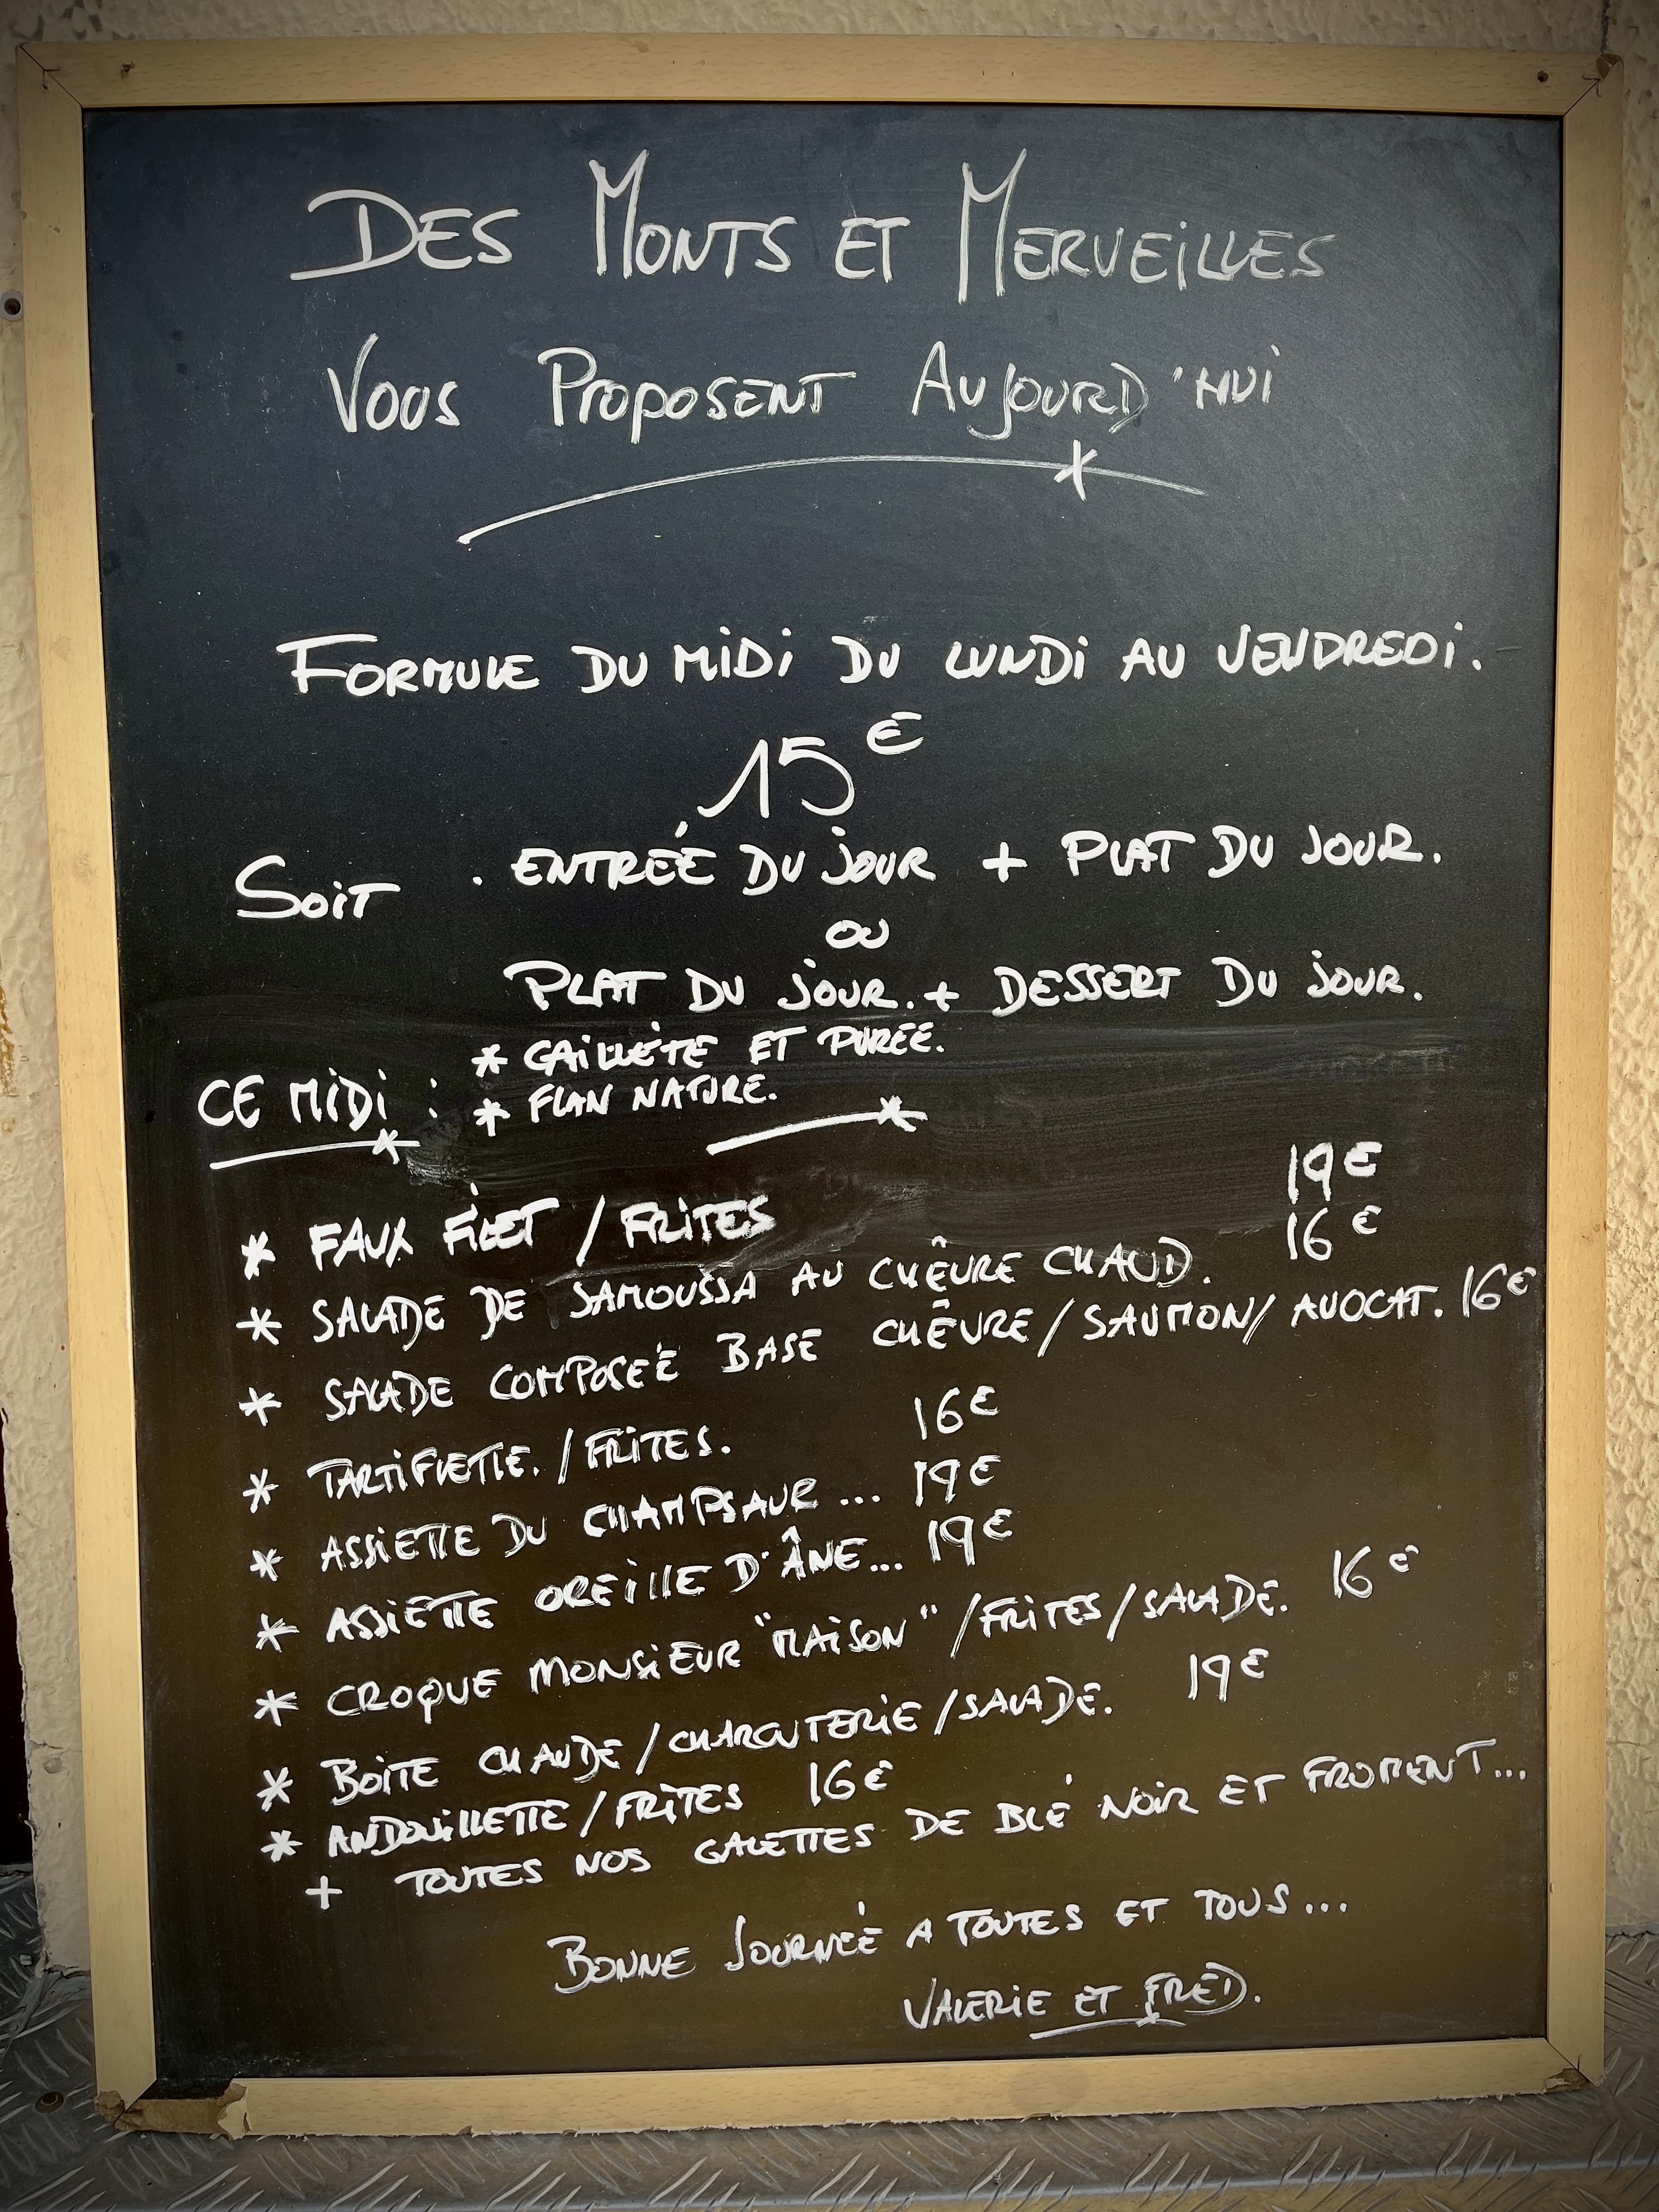 DES MONTS ET MERVEILLES
VOUS PROPOSENT AUJOURD'HUI
FORMULE DU MIDI DU LUNDI AU VENDREDI.
15€
SOIT . ENTRÉE DU JOUR + PLAT DU JOUR.
OU
PLAT DU JOUR. + DESSERT DU JOUR.
* CAILLÉTE ET PURÉE.
CE MIDI :
* FLAN NATURE.
* FAUX FILET / FRITES 19€
* SALADE DE SAMOUSSA AU CHÊVRE CHAUD. 16€
* SALADE COMPOSÉE BASE CHÊVRE / SAUMON / AVOCAT. 16€
* TARTIFLETTE. / FRITES. 16€
* ASSIETTE DU CHAMPSAUR ... 19€
* ASSIETTE OREILLE D'ÂNE... 19€
* CROQUE MONSIEUR "MAISON" / FRITES / SALADE. 16€
* BOITE CHAUDE / CHARCUTERIE / SALADE. 19€
* ANDOUILLETTE / FRITES 16€
+ TOUTES NOS GALETTES DE BLÉ NOIR ET FROMENT...
BONNE JOURNÉE A TOUTES ET TOUS...
VALERIE ET FRED.